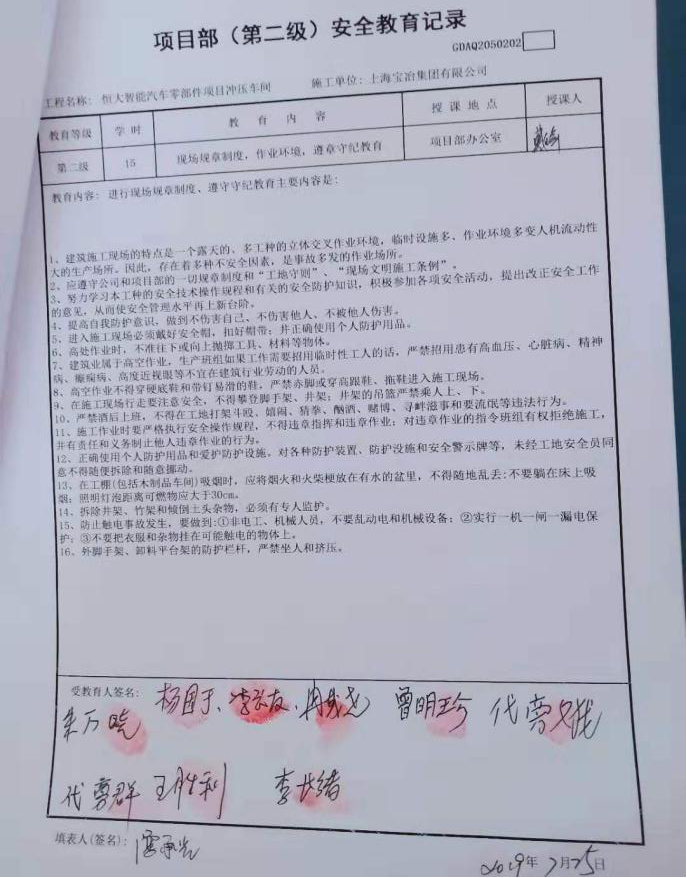 项目部（第二级）安全教育记录
GDAQ2050202
工程名称: 恒大智能汽车零部件项目冲压车间 施工单位: 上海宝冶集团有限公司
教育等级 学时 教育内容 授课地点 授课人
第二级 15 现场规章制度, 作业环境, 遵章守纪教育 项目部办公室
教育内容: 进行现场规章制度、遵守守纪教育主要内容是:
1、建筑施工现场的特点是一个露天的、多工种的立体交叉作业环境, 临时设施多、作业环境多变人机流动性
大的生产场所。因此, 存在着多种不安全因素, 是事故多发的作业场所。
2、应遵守公司和项目部的一切规章制度和“工地守则”、“现场文明施工条例”。
3、努力学习本工种的安全技术操作规程和有关的安全防护知识, 积极参加各项安全活动, 提出改正安全工作
的意见, 从而使安全管理水平再上新台阶。
4、提高自我防护意识, 做到不伤害自己、不伤害他人、不被他人伤害。
5、进入施工现场必须戴好安全帽, 扣好帽带; 并正确使用个人防护用品。
6、高处作业时, 不准往下或向上抛掷工具、材料等物体。
7、建筑业属于高空作业, 生产班组如果工作需要招用临时性工人的话, 严禁招用患有高血压、心脏病、精神
病、癫痫病、高度近视眼等不宜在建筑行业劳动的人员。
8、高空作业不得穿硬底鞋和带钉易滑的鞋, 严禁赤脚或穿高跟鞋、拖鞋进入施工现场。
9、在施工现场行走要注意安全, 不得攀登脚手架、井架; 井架的吊篮严禁乘人上、下。
10、严禁酒后上班, 不得在工地打架斗殴、嬉闹、猜拳、酗酒、赌博、寻衅滋事和耍流氓等违法行为。
11、施工作业时要严格执行安全操作规程, 不得违章指挥和违章作业; 对违章作业的指令班组有权拒绝施工,
并有责任和义务制止他人违章作业的行为。
12、正确使用个人防护用品和爱护防护设施。对各种防护装置、防护设施和安全警示牌等, 未经工地安全员同
意不得随便拆除和随意挪动。
13、在工棚(包括木制品车间)吸烟时, 应将烟火和火柴梗放在有水的盆里, 不得随地乱丢:不要躺在床上吸
烟; 照明灯泡距离可燃物应大于30cm。
14、拆除井架、竹架和倾倒土头杂物, 必须有专人监护。
15、防止触电事故发生, 要做到:①非电工、机械人员, 不要乱动电和机械设备; ②实行一机一闸一漏电保
护; ③不要把衣服和杂物挂在可能触电的物体上。
16、外脚手架、卸料平台架的防护栏杆, 严禁坐人和挤压。
受教育人签名: 杨国于、李云友、 曾明珍
王胜利 李长绪
填表人(签名):
2019年7月25日